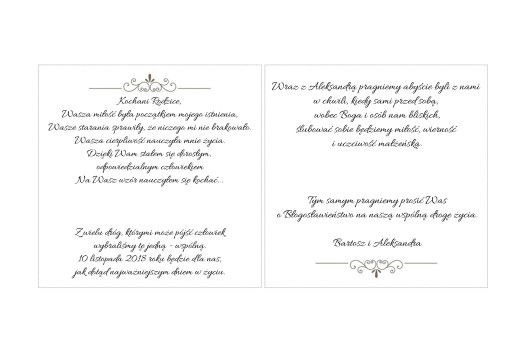 Kochani Rodzice,
Wasza miłość była początkiem mojego istnienia,
Wasze starania sprawiły, że niczego mi nie brakowało.
Wasza cierpliwość nauczyła mnie życia.
Dzięki Wam stałem się dorosłym,
odpowiedzialnym człowiekiem
Na Wasz wzór nauczyłem się kochać...
Z wielu dróg, którymi może pójść człowiek
wybraliśmy tę jedną - wspólną.
10 listopada 2018 roku będzie dla nas,
jak dotąd najważniejszym dniem w życiu.
Wraz z Aleksandrą pragniemy abyście byli z nami
w chwili, kiedy sami przed sobą,
wobec Boga i osób nam bliskich,
ślubować sobie będziemy miłość, wierność
i uczciwość małżeńską.
Tym samym pragniemy prosić Was
o Błogosławieństwo na naszą wspólną drogę życia.
Bartosz i Aleksandra